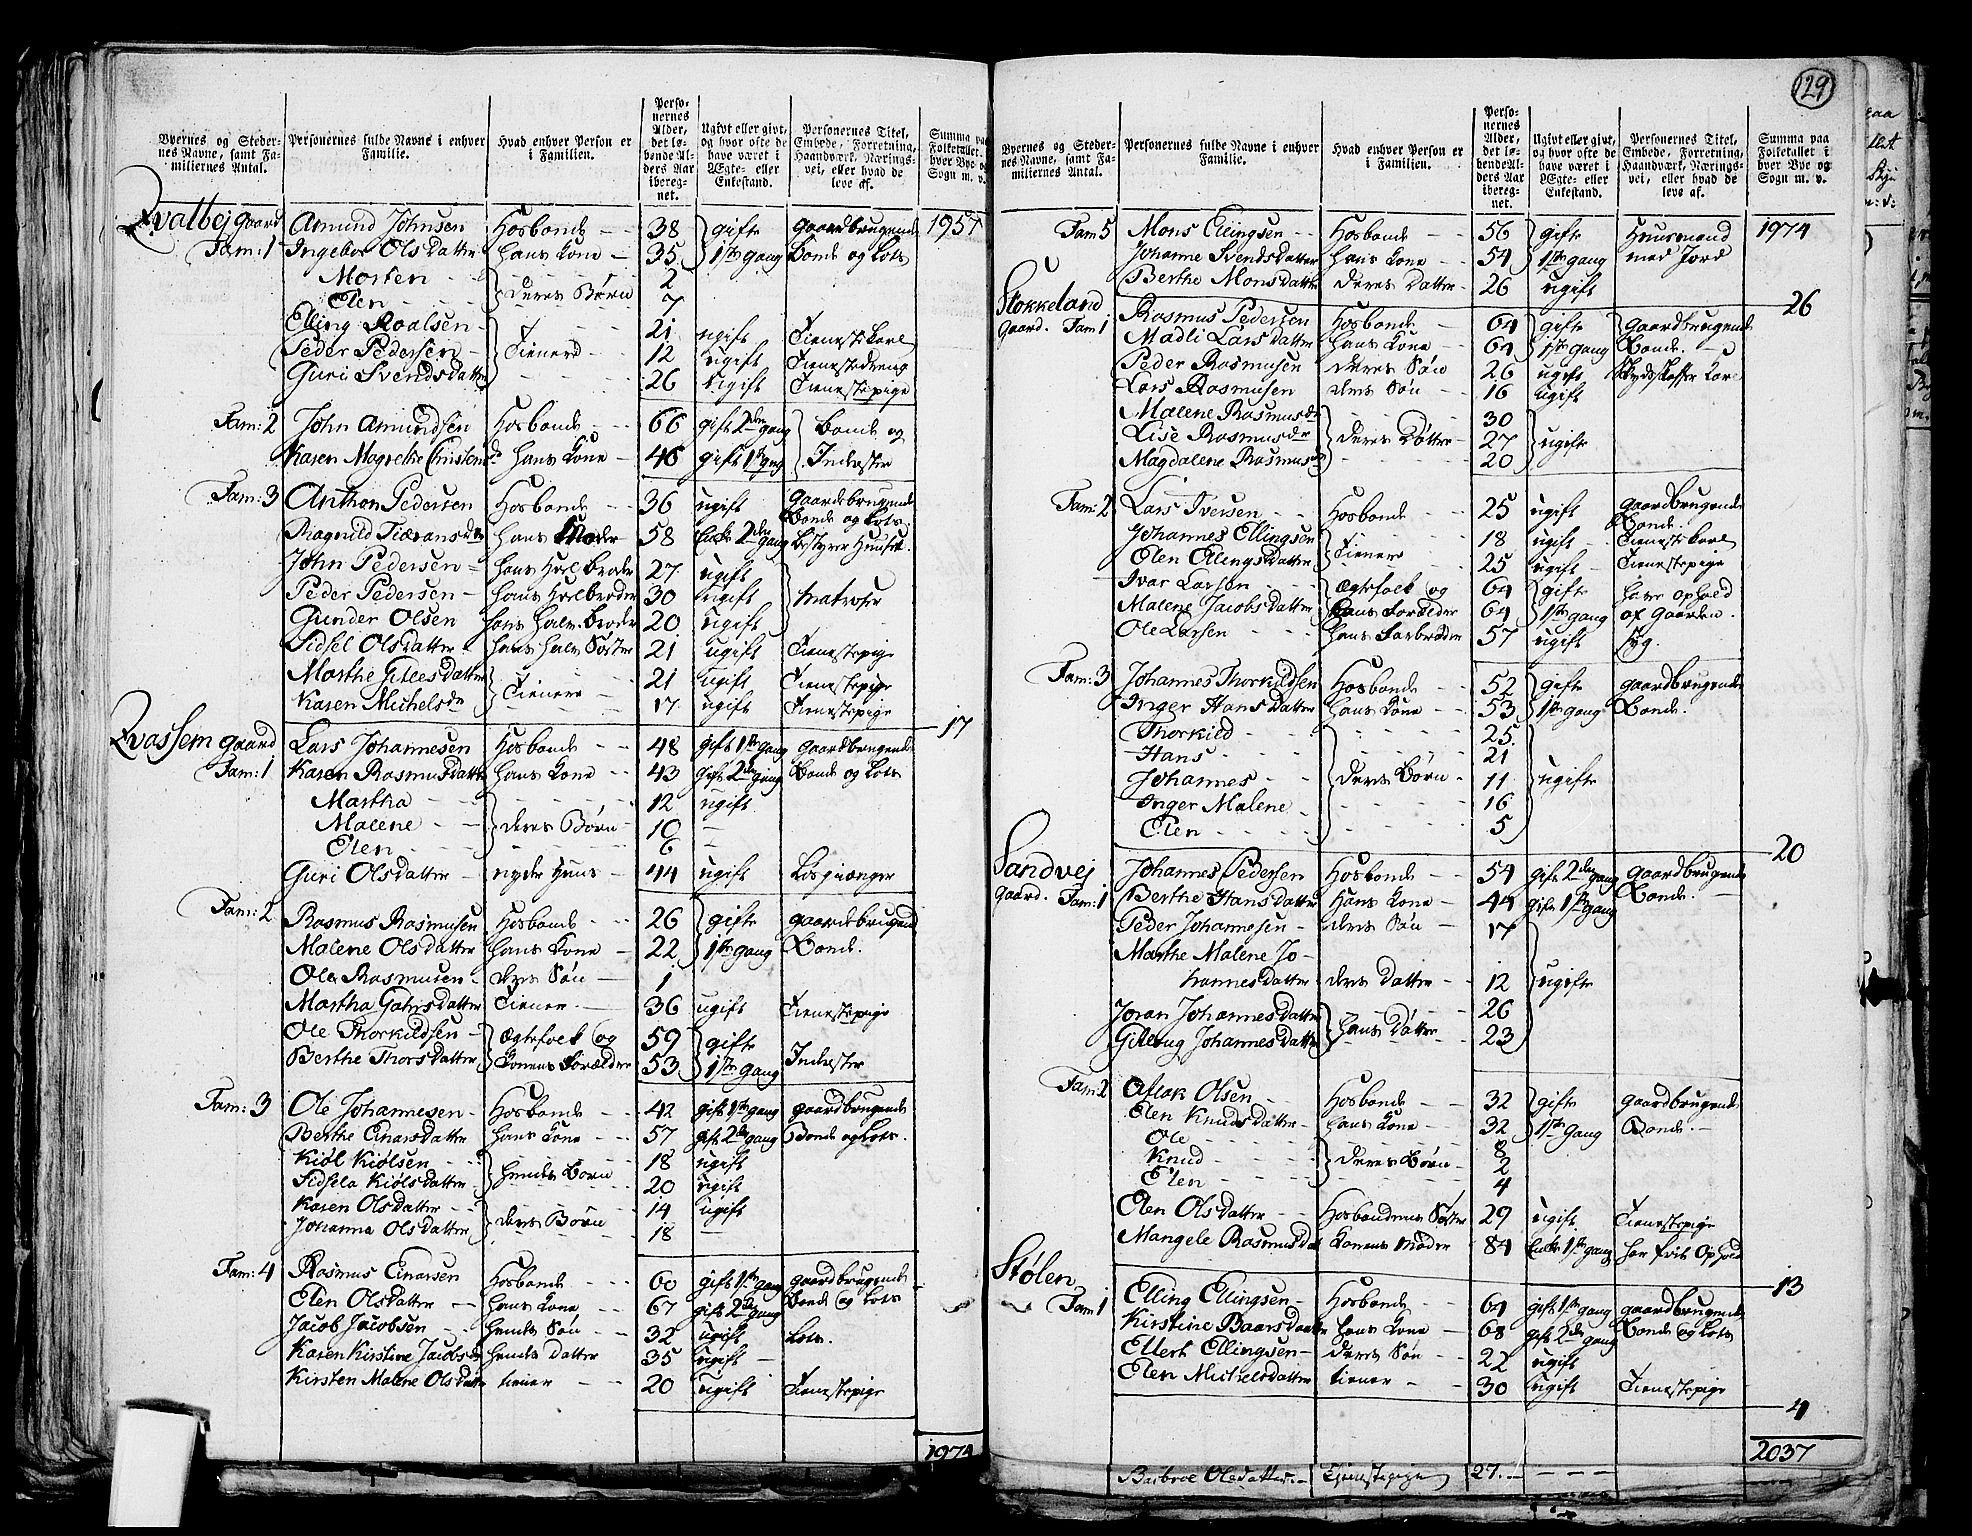 129
Byernes og Stedernes Navne, samt Familiernes Antal.
Personernes fulde Navne i enhver Familie.
Hvad enhver Person er i Familien.
Personernes Alder, det løbende Alders Aar iberegnet.
Ugivt eller givt, og hvor ofte de have været i Ægte- eller Enkestand.
Personernes Titel, Embede, Forretning, Haandværk, Næringsvei, eller hvad de leve af.
Summa paa Folketallet i hver Bye og Sogn m. v.
Qvalbej gaard Amund Johnsen Hosbonde 38 gifte gaardbrugende 1957
Fam: 1 Ingebor Olsdatter hans Kone 35 1ste gang Bonde og Lots
Morten 2
Elen deres Børn 7
Elling Roalsen 21 ugift Tienestekarl
Peder Pedersen Tienere 12 ugift Tienestedreng
Guri Svendsdatter 26 ugift Tienestepige
Fam: 2 John Amundsen Hosbonde 66 gift 2den gang Bonde og
Karen Magrethe Christensd. hans Kone 46 gift 1ste gang Inderster
Fam: 3 Anthon Pedersen Hosbonde 36 ugift gaardbrugende Bonde og Lots
58 Enke 2den gang bestyrer Huuset
John Pedersen hans Hel broder 27 ugift
Peder Pedersen hans Helbroder 30 ugift Matroser
Gunder Olsen hans Halv Broder 20 ugift
Sidsel Olsdatter hans Halv Søster 21 ugift Tienestepige
Marthe 21 ugift Tienestepige
Karen Michelsdr Tienere 17 ugift Tienestepige
17
Qvassem gaard Lars Johannesen Hosbonde 48 gift 1ste gang gaardbrugende
Fam: 1 Karen Rasmusdatter hans Kone 43 gift 2den gang Bonde og Lots
Martha 12 ugift
Malene deres Børn 10 —
Elen 6
Guri Olsdatter nyder Huus 44 ugift Losgiænger
Fam: 2 Rasmus Rasmusen Hosbonde 26 gifte gaardbrugend
Malene Olsdatter hans Kone 22 1ste gang Bonde.
Ole Rasmusen deres Søn 1
Martha Tiener 36 ugift Tienestepige
Ole Thorkildsen Ægtefolk og 59 gifte
Berthe Thorsdatter Konens Forældre 53 1ste gang Inderster
Fam: 3 Ole Johannesen Hosbonde 42 gift 1ste gang gaardbrugende
Berthe Einarsdatter hans Kone 57 gift 2den gang Bonde og Lots.
Kiøl Kiølsen 18 ugift
Sidsela Kiølsdatter hendes Børn 20 ugift
Karen Olsdatter 14 ugift
Johanna Olsdatter deres Børn 18 —
Fam: 4 Rasmus Einarsen Hosbonde 60 gift 1ste gang gaardbrugende
Elen Olsdatter hans Kone 67 gift 2den gang Bonde og Lots
Jacob Jacobsen hendes Søn 32 ugift Lots.
Karen Kirstine Jacobsdr hendes Datter 35 ugift
Kirsten Malene Olsdatter tiener 20 ugift Tienestepige
1974
Byernes og Stedernes Navne, samt Familiernes Antal.
Personernes fulde Navne i enhver Familie.
Hvad enhver Person er i Familien.
Personernes Alder, det løbende Alders Aar iberegnet.
Ugivt eller givt, og hvor ofte de have været i Ægte- eller Enkestand.
Personernes Titel, Embede, Forretning, Haandværk, Næringsvei, eller hvad de leve af.
Summa paa Folketallet i hver Bye og Sogn m. v.
Fam 5 Mons Ellingsen Hosbonde 56 gifte Huusmand 1974
Johanne Svendsdatter hans Kone 54 1ste gang med Jord
Berthe Monsdatter deres Datter 26 ugift
26
Stokkeland Rasmus Pedersen Hosbonde 64 gifte gaardbrugende
gaard. Fam 1 Madli Larsdatter hans Kone 64 1ste gang Bonde.
Peder Rasmusen deres Søn 26 ugift
Lars Rasmusen deres Søn 16 ugift
Malene Rasmusdr 30
Lise Rasmusdr deres Døttre 27 ugifte
Magdalene Rasmusdr 20
Fam: 2 Lars Iversen Hosbonde 25 ugift gaardbrugende Bonde.
Johannes Ellingsen 18 ugift Tienestekarl
Elen Ellingsdatter Tienere 25 ugift Tienestepige
Ivar Larsen Ægtefolk og 64 gifte have ophold
Malene Jacobsdatter hans Forældre 64 1ste gang af Gaarden.
Ole Larsen hans Farbrødder 57 ugift syg.
Fam: 3 Johannes Thorkildsen Hosbonde 52 gifte gaardbrugende
Inger Hansdatter hans Kone 53 1ste gang Bonde.
Thorkild 25
Hans 21
Johannes deres Børn 11 ugifte
Inger Malene 16
Elen 5
20
Sandvej Johannes Pedersen Hosbonde 54 gift 2den gang gaardbrugende
gaard. Fam: 1 Berthe Hansdatter Hans Kone 44 gift 1ste gang Bonde.
Peder Johannesen deres Søn 17
Marthe Malene Jo-
hannesdatter deres Datter 12 ugifte
Joran Johannesdatter 26
Johannesdatter hans Døttre 23
Fam: 2 Aslak Olsen Hosbonde 32 gifte gaardbrugende
Elen Knudsdatter hans Kone 32 1ste gang Bonde.
Ole 8
Knud deres Børn 2
Elen 4
Elen Olsdatter Hosbondens Søster 29 ugift Tienestepige
Mangele Rasmusdatter Konens Moder 84 Enke 1ste gang har frit Ophold
13
Stølen
Fam 1 Elling Ellingsen Hosbonde 64 gift 1ste gang gaardbrugende
Kirstine Baarsdatter hans Kone 68 gift 2den gang Bonde og Lots
Ellert Ellingsen deres Søn 22 ugift
Elen Michelsdatter tiener 30 ugift Tienestepige
4
2037
Barbroe Olsdatter Tjenestepige 27.